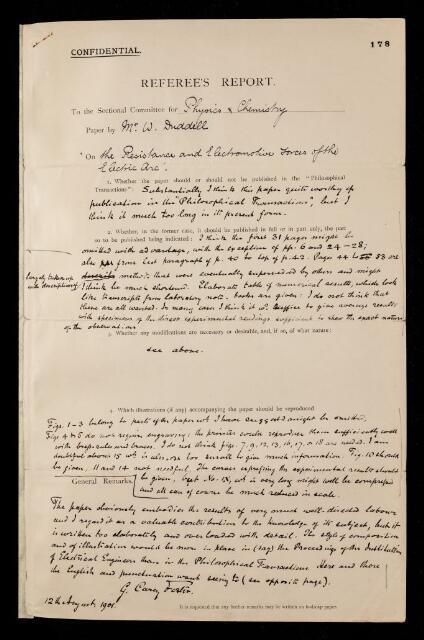 CONFIDENTIAL.
178
REFEREE'S REPORT.
To the Sectional Committee for Physics & Chemistry
Paper by Mr. W. Duddell
"On the Resistance and Electromotive Forces of the
Electric Arc".
1. Whether the paper should or should not be published in the "Philosophical
Transactions": Substantially, I think this paper quite worthy of
publication in the "Philosophical Transactions", but I
think it much too long in its present form.
2. Whether, in the former case, it should be published in full or in part only, the part
so to be published being indicated: I think the first 31 pages might be
omitted with advantage, with the exception of pp. 6 and 24–28;
also from last paragraph of p. 40 to top of p. 42. Pages 44 to 53 are
largely taken up with descriptions of methods that were eventually superseded by others and might
I think be much shortened. Elaborate tables of numerical results, which look
like transcripts from laboratory note-books are given: I do not think that
these are all wanted. In many cases I think it wd. suffice to give average results
with specimens of the direct experimental readings sufficient to shew the exact nature
of the observations.
3. Whether any modifications are necessary or desirable, and, if so, of what nature:
see above.
4. Which illustrations (if any) accompanying the paper should be reproduced
Figs. 1–3 belong to parts of the paper wh. I have suggested might be omitted.
Figs 4 & 5 do not require engraving; the printer could reproduce them sufficiently well
with brass-rules and braces. I do not think figs. 7, 9, 12, 13, 16, 17, or 18 are needed. I am
doubtful about 15 wh. is also, too small to give much information. Fig. 10 should
be given, 11 and 14 not needful. The curves expressing the experimental results should
General Remarks. be given, but No. wh. is very long might well be compressed
and all can of course be much reduced in scale.
The paper obviously embodies the results of very much well-directed labour
and I regard it as a valuable contribution to the knowledge of its subject, but it
is written too elaborately and overloaded with detail. The style of composition
and of illustration would be more in place in (say) the Proceedings of the Institution
of Electrical Engineers than in the Philosophical Transactions. Here and there
the English and punctuation want seeing to (see opposite page).
G. Carey Foster.
12th August 1901.
It is requested that any further remarks may be written on foolscap paper.